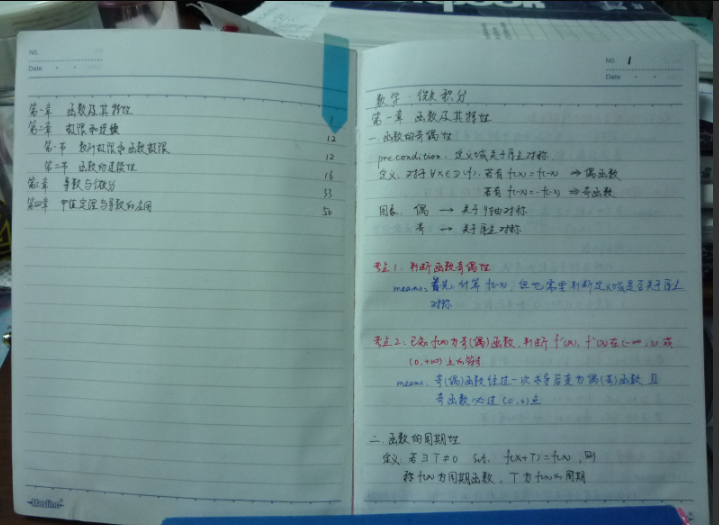 No.
Date
第一章 函数及其特性 1
第二章 极限和连续 12
第一节 数列极限和函数极限 12
第二节 函数的连续性 18
第三章 导数与微分 33
第四章 中值定理与导数的应用 50
No. 1
Date
数学·微积分
第一章 函数及其特性
一、函数的奇偶性
precondition: 定义域关于原点对称
定义: 对于∀x∈D(f), 若有 f(x)=f(-x) ⇒偶函数
若有 f(-x)=-f(x) ⇒奇函数
图表: 偶 → 关于y轴对称
奇 → 关于原点对称
考点1: 判断函数奇偶性
means: 首先计算 f(-x), 但也需要判断定义域是否关于原点
对称
考点2: 已知f(x)为奇(偶)函数, 判断 f'(x), f''(x)在(-∞,0)或
(0,+∞)上的符号
means: 奇(偶)函数经过一次求导后变为偶(奇)函数 且
奇函数必过(0,0)点
二、函数的周期性
定义: 若∃T≠0 s.t. f(x+T)=f(x), 则
称f(x)为周期函数, T为f(x)的周期